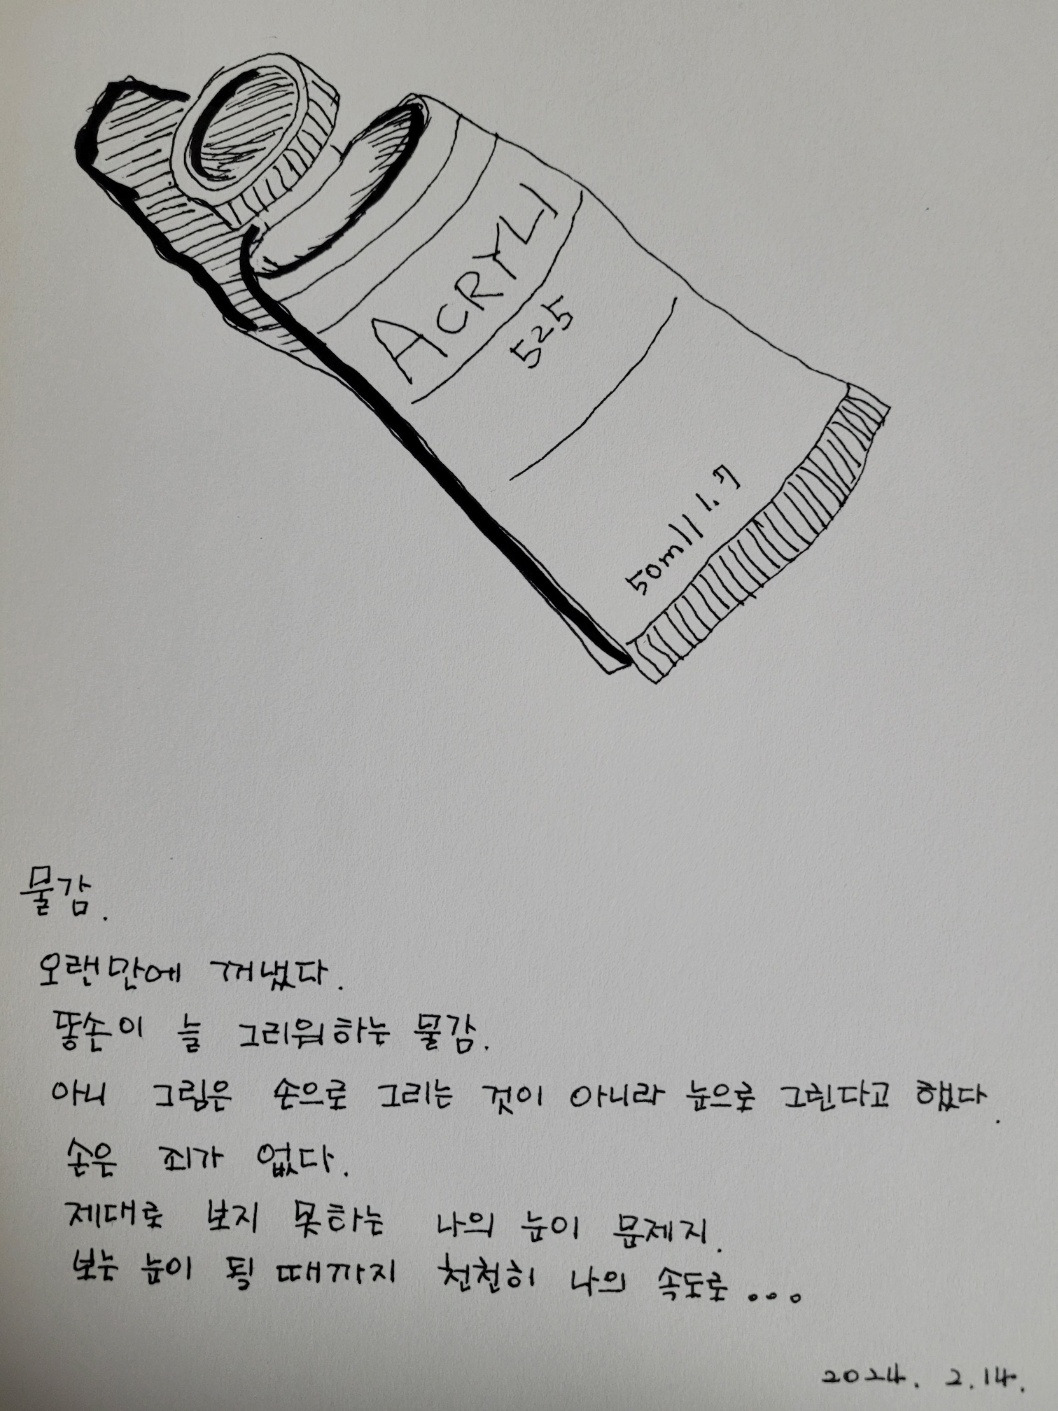 ACRYLI
525
50ml/1.7
물감.
오랜만에 꺼냈다.
똥손이 늘 그리워하는 물감.
아니 그림은 손으로 그리는 것이 아니라 눈으로 그린다고 했다.
손은 죄가 없다.
제대로 보지 못하는 나의 눈이 문제지.
보는 눈이 될 때까지 천천히 나의 속도로...
2024. 2.14.